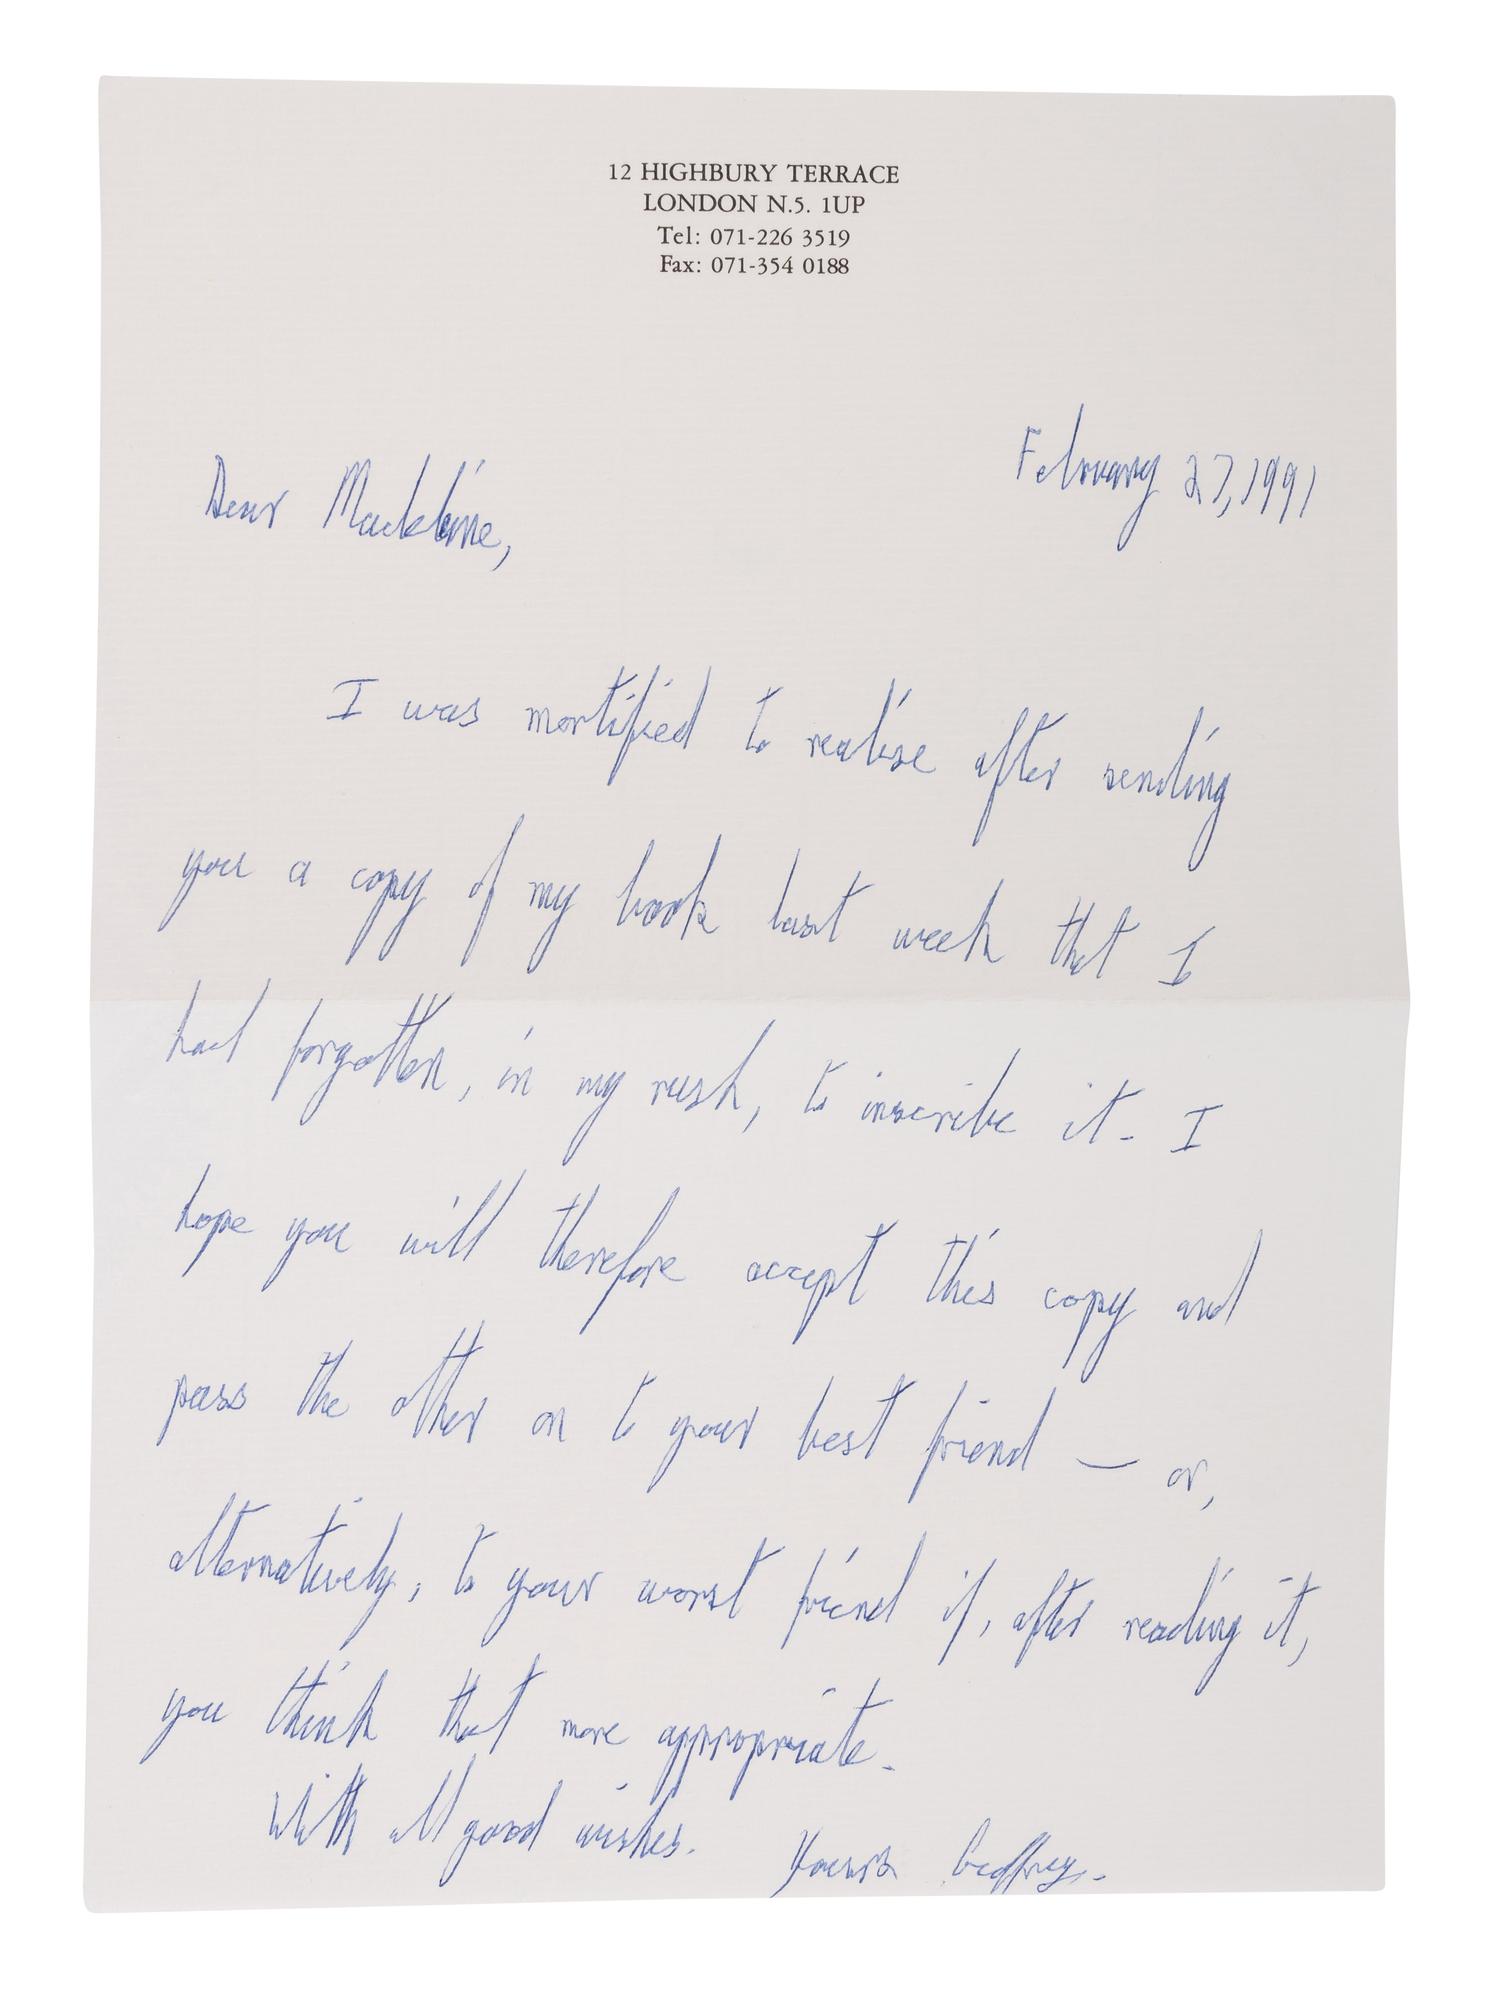 12 HIGHBURY TERRACE
LONDON N.5. 1UP
Tel: 071-226 3519
Fax: 071-354 0188
February 27, 1991
Dear Madeleine,
I was mortified to realise after sending
you a copy of my book last week that I
had forgotten, in my rush, to inscribe it. I
hope you will therefore accept this copy and
pass the other on to your best friend — or,
alternatively, to your worst friend if, after reading it,
you think that more appropriate.
With all good wishes. Yours Geoffrey.